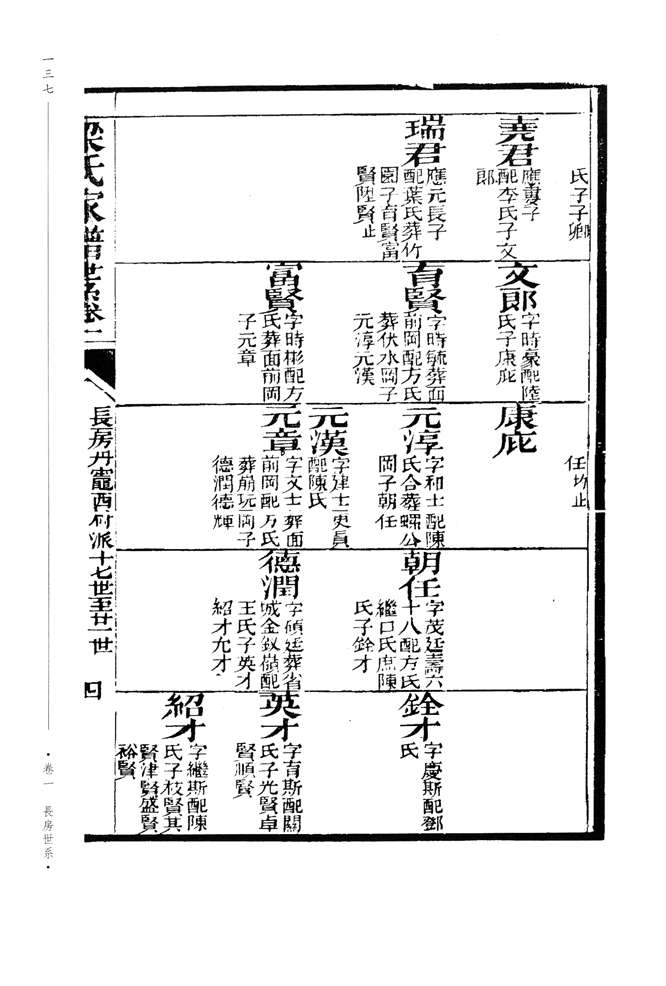 氏子子卿
堯君
應夔子
配李氏子文
郎
瑞君
應元長子
配葉氏葬竹
園子育賢富
賢陞賢止
文郎
字時豪配陸
氏子康庇
育賢
字時毓葬面
前岡配方氏
葬伏水岡子
元淳元漢
富賢
字時彬配方
氏葬面前岡
子元章
任圿止
康庇
元淳
字和士配陳
氏合葬螺公
岡子朝任
元漢
字建士吏員
配陳氏
元章
字文士葬面
前岡配方氏
葬崩坑岡子
德潤德輝
朝任
字茂廷壽六
十八配方氏
繼口氏庶陳
氏子銓才
德潤
字碩廷葬省
城金釵嶺配
王氏子英才
紹才允才
銓才
字慶斯配鄧
氏
英才
字育斯配關
氏子光賢卓
賢順賢
紹才
字繼斯配陳
氏子枝賢其
賢津賢盛賢
裕賢
梁氏家譜世系卷一
長房丹竈西村派十七世至廿一世
四
一三七
·卷一 長房世系·